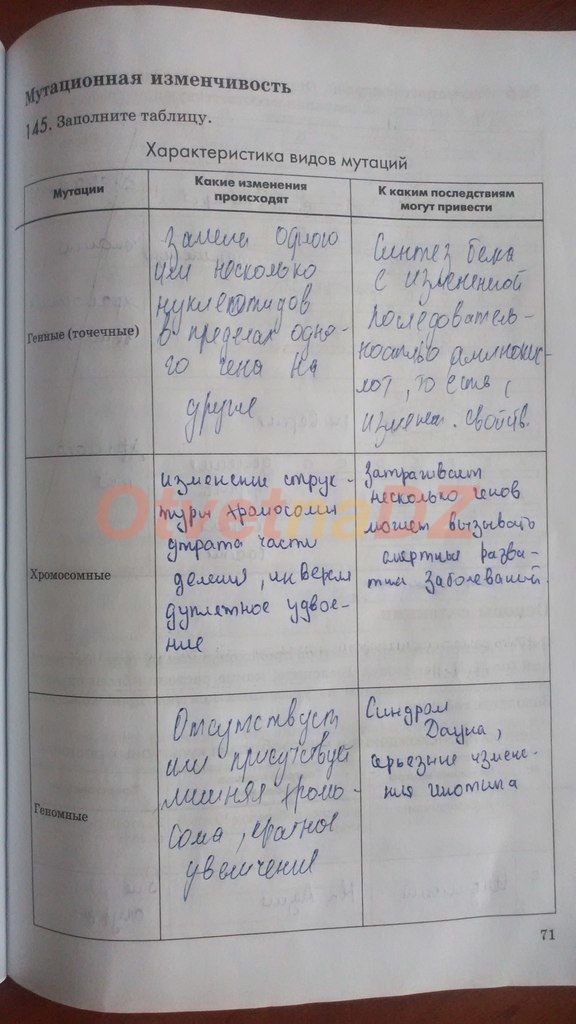 Мутационная изменчивость
145. Заполните таблицу.
Характеристика видов мутаций
Мутации
Какие изменения
происходят
К каким последствиям
могут привести
Генные (точечные)
Замена одного
или несколько
нуклеотидов
в пределах одно-
го гена на
другие
Синтез белка
с измененной
последователь-
ностью аминокис-
лот, то есть с
изменен. свойств.
Хромосомные
изменение струк-
туры хромосомы
утрата части
деления, инверси
дуплетное удвое-
ние.
Затрагивает
несколько генов
может вызывать
разви-
тия заболеваний.
Геномные
Отсутствует
или присутствует
лишняя хромо-
сома, кратное
увеличение
Синдром
Дауна,
серьезные измене-
ния
71
OtvetnaDZ